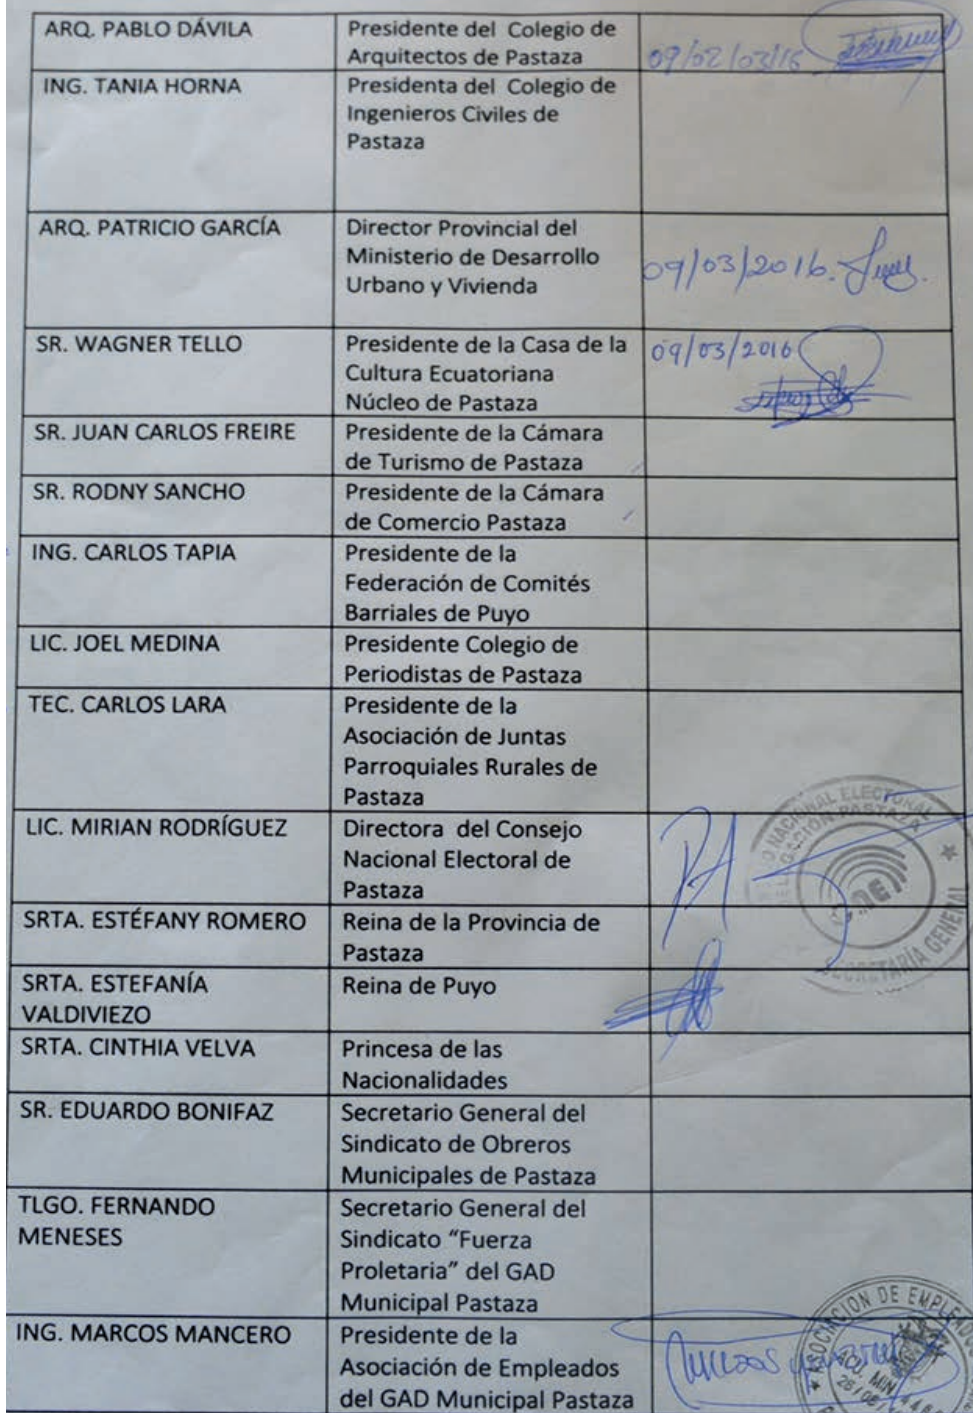 ARQ. PABLO DÁVILA
Presidente del Colegio de
Arquitectos de Pastaza
09/02/03/16
ING. TANIA HORNA
Presidenta del Colegio de
Ingenieros Civiles de
Pastaza
ARQ. PATRICIO GARCÍA
Director Provincial del
Ministerio de Desarrollo
Urbano y Vivienda
09/03/2016.
SR. WAGNER TELLO
Presidente de la Casa de la
Cultura Ecuatoriana
Núcleo de Pastaza
09/03/2016
SR. JUAN CARLOS FREIRE
Presidente de la Cámara
de Turismo de Pastaza
SR. RODNY SANCHO
Presidente de la Cámara
de Comercio Pastaza
ING. CARLOS TAPIA
Presidente de la
Federación de Comités
Barriales de Puyo
LIC. JOEL MEDINA
Presidente Colegio de
Periodistas de Pastaza
TEC. CARLOS LARA
Presidente de la
Asociación de Juntas
Parroquiales Rurales de
Pastaza
LIC. MIRIAN RODRÍGUEZ
Directora del Consejo
Nacional Electoral de
Pastaza
NACIONAL ELECTORAL
DELEGACIÓN PASTAZA
SECRETARÍA GENERAL
SRTA. ESTÉFANY ROMERO
Reina de la Provincia de
Pastaza
SRTA. ESTEFANÍA
VALDIVIEZO
Reina de Puyo
SRTA. CINTHIA VELVA
Princesa de las
Nacionalidades
SR. EDUARDO BONIFAZ
Secretario General del
Sindicato de Obreros
Municipales de Pastaza
TLGO. FERNANDO
MENESES
Secretario General del
Sindicato “Fuerza
Proletaria” del GAD
Municipal Pastaza
ING. MARCOS MANCERO
Presidente de la
Asociación de Empleados
del GAD Municipal Pastaza
ASOCIACION DE
ACU. MIN.